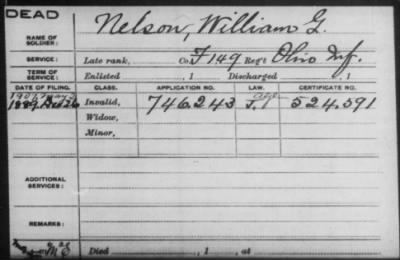 DEAD
NAME OF SOLDIER: Nelson, William G.
SERVICE: Late rank, Co. F 149 Reg't Ohio Inf.
TERM OF SERVICE: Enlisted , 1 Discharged , 1
DATE OF FILING. CLASS. APPLICATION NO. LAW. CERTIFICATE NO.
1907 May
1889 Dec 26 Invalid, 746.243 J. 524.591
Widow,
Minor,
ADDITIONAL SERVICES:
REMARKS:
Died , 1 , at